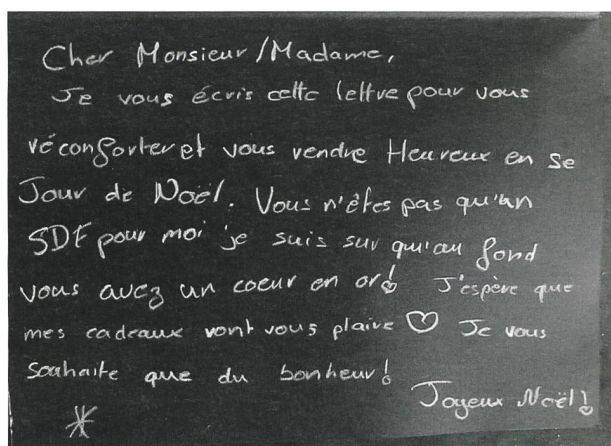 Cher Monsieur/Madame,
Je vous écris cette lettre pour vous
réconforter et vous rendre Heureux en se
Jour de Noël. Vous n'êtes pas qu'un
SDF pour moi je suis sur qu'au fond
vous avez un coeur en or! J'espère que
mes cadeaux vont vous plaire ♡ Je vous
souhaite que du bonheur!
Joyeux Noël!